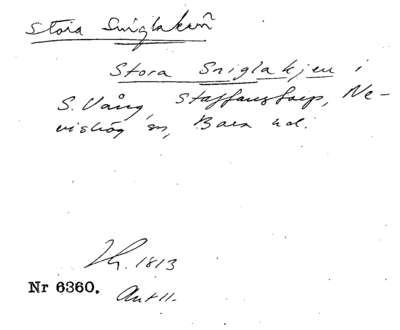 Stora Sniglakärr
Stora Sniglakjeu i
S. Vång, Staffanstorp, Ne-
vishög sn, Bara hd.
Lh. 1813
Nr 6360. Ant 11.